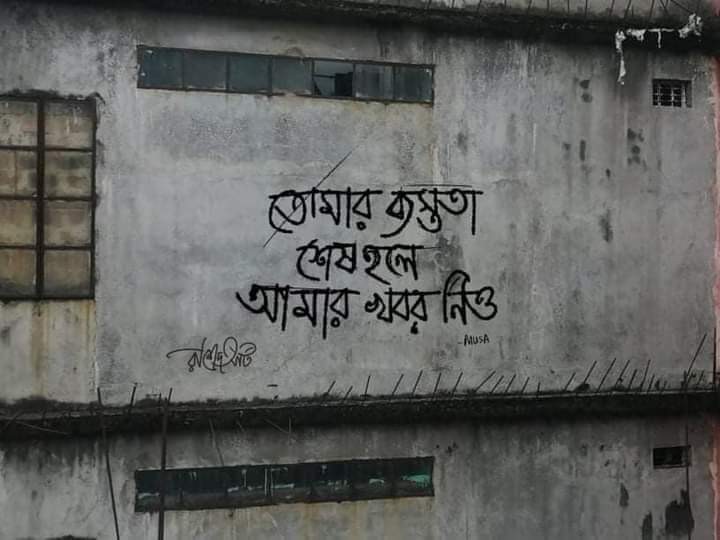 তোমার ব্যস্ততা
শেষ হলে
আমার খবর নিও
-MUSA